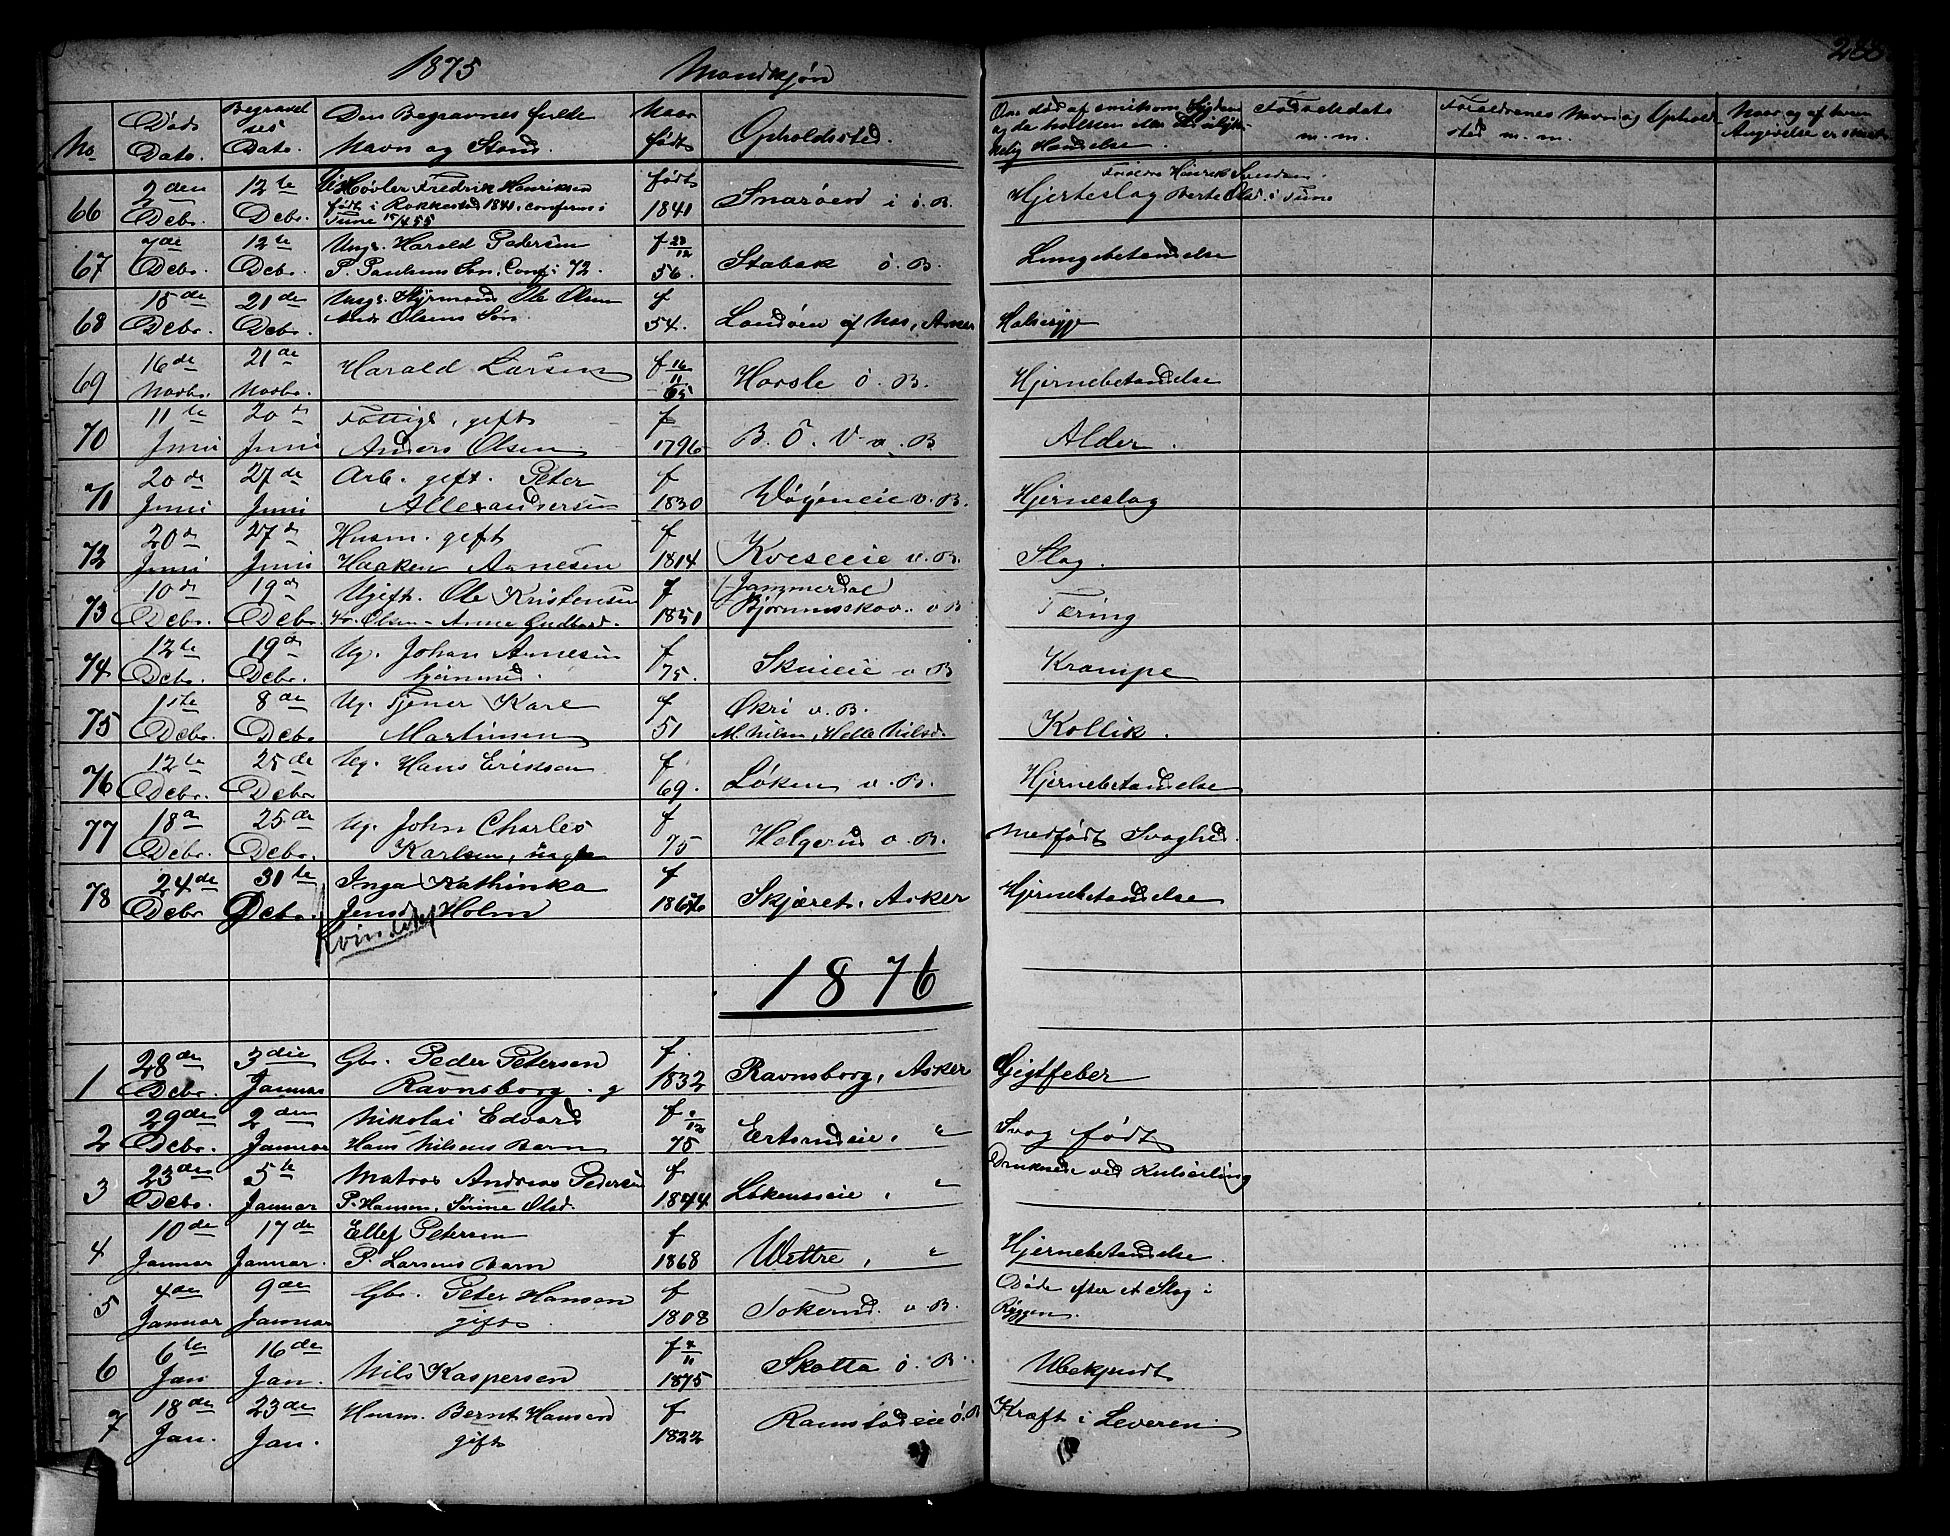 1875 Mandkjøn
No
Døds Dato.
Begravelses Dato.
Den Begravnes fulde Navn og Stand.
Naar født
Opholdssted.
66 2den Debr. 12te Debr. Fredrik Henriksen født i Rakkestad 1841, conferm i Tune 15/4 55 født 1841 Snarøen i ö. B. Hjerteslag
Forældre Henrik i Tune
67 7de Debr. 12te Debr. Ungk. Harald Pedersen P. Paulsens Søn, Conf. 72. f 23/12 56. Stabæk ö. B. Lungebetændelse
68 15de Debr. 21de Debr. Ungk. Styrmand Ole Olsen Andr Olsens Søn f 54. Landöen af Nes, Asker Halssyge
69 16de Novbr. 21de Novbr. Harald Larsen f 16/11 65 Horsle ö. B. Hjernebetændelse
70 11te Juni 20d Juni Fattigl, gift Anders Olsen f 1796 B. Ö. V v. B Alder.
71 20de Juni 27de Juni Arb. gift. Peter Allexandersen f 1830 Vøyeneie v. B. Hjerneslag
72 20d Juni 27d Juni Husm. gift Haaken Arnesen f 1814 Kveseeie v. B. Slag.
73 10d Debr. 19d Debr. Ugift. Ole Kristensen Kr. Olsen - Anne Gudbrd. f 1851 (Jammerdal Bjørumsskov. v B Tæring
74 12te Debr. 19d Debr. Ug. Johan Arnesen hjemmed. f 75. Skuieie v B Krampe
75 1ste Debr. 8de Debr Ug. Tjener Karl Martinsen f 51 Økri v. B. M. Nilsn, Helle Nilsd. Kollik.
76 12te Debr. 25de Debr Ug. Hans Eriksen f 69. Løken v. B. Hjernebetændelse
77 18d Debr. 25de Debr. Ug. John Charles Karlsen, uægte f 75 Helgerud v. B. Medfødt Svaghed.
78 24de Debr 31te Debr. Inga Kathinka Jensd Holm f Skjæret, Asker Hjernebetændelse
Kvindekj
1876
1 28de Debr. 3die Januar Gbr. Peder Petersen Ravnsborg. g f. 1832 Ravnsborg, Asker Gigtfeber
2 29de Debr. 2den Januar Nikolai Edvard Hans Nilsens Barn f 75 Ertsrudeie, " Svag født
3 23de Debr. 5te Januar Matros Andreas Pedersen P. Hansen, Serine Olsd. f 1844 Løkenseie, " Druknede ved Kulseiling
4 10de Januar 17de Januar. Ellef Petersen P. Larsens Barn f 1868 Wettre, " Hjernebetændelse.
5 4de Januar 9de Januar Gbr. Peter Hansen gift f 1808 Tokerud. v. B. Døde efter et Slag i Ryggen.
6 6te Jan 16de Jan. Nils Kaspersen f 1875 Skotta ö. B. Ubekjendt
7 18de Jan. 23de Jan. Husm. Bernt Hansen gift f 1822 Ramstadeie ö. B Kræft i Leveren.